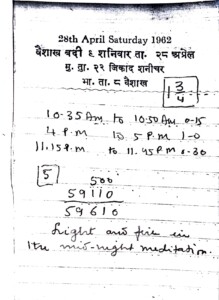 28th April Saturday 1962
वैशाख वदी ६ शनिवार ता. २८ अप्रेल
मु. ता. २२ जिकाद शनीचर
भा. ता. ८ वैशाख
1 3/4
10.35 Am to 10.50 Am 0-15
4 P.M to 5 P.M 1-0
11.15 P.m to 11.45 P.m 0-30
5
500
59110
59610
Light and fire in
the mid-night meditation